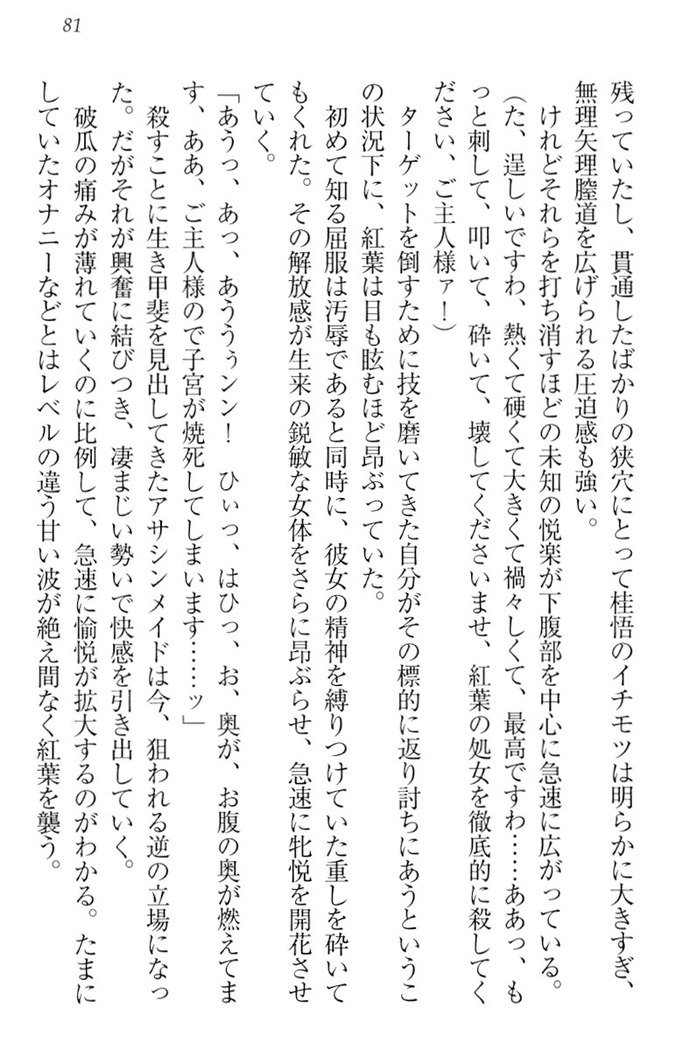 81
残っていたし、貫通したばかりの狭穴にとって桂悟のイチモツは明らかに大きすぎ、
無理矢理膣道を広げられる圧迫感も強い。
けれどそれらを打ち消すほどの未知の悦楽が下腹部を中心に急速に広がっている。
(た、逞しいですわ、熱くて硬くて大きくて禍々しくて、最高ですわ……ああっ、も
っと刺して、叩いて、砕いて、壊してくださいませ、紅葉の処女を徹底的に殺してく
ださい、ご主人様ァ！)
ターゲットを倒すために技を磨いてきた自分がその標的に返り討ちにあうというこ
の状況下に、紅葉は目も眩むほど昂ぶっていた。
初めて知る屈服は汚辱であると同時に、彼女の精神を縛りつけていた重しを砕いて
もくれた。その解放感が生来の鋭敏な女体をさらに昂ぶらせ、急速に牝悦を開花させ
ていく。
「あうっ、あっ、あううぅンン！　ひぃっ、はひっ、お、奥が、お腹の奥が燃えてま
す、ああ、ご主人様ので子宮が焼死してしまいます……ッ」
殺すことに生き甲斐を見出してきたアサシンメイドは今、狙われる逆の立場になっ
た。だがそれが興奮に結びつき、凄まじい勢いで快感を引き出していく。
破瓜の痛みが薄れていくのに比例して、急速に愉悦が拡大するのがわかる。たまに
していたオナニーなどとはレベルの違う甘い波が絶え間なく紅葉を襲う。